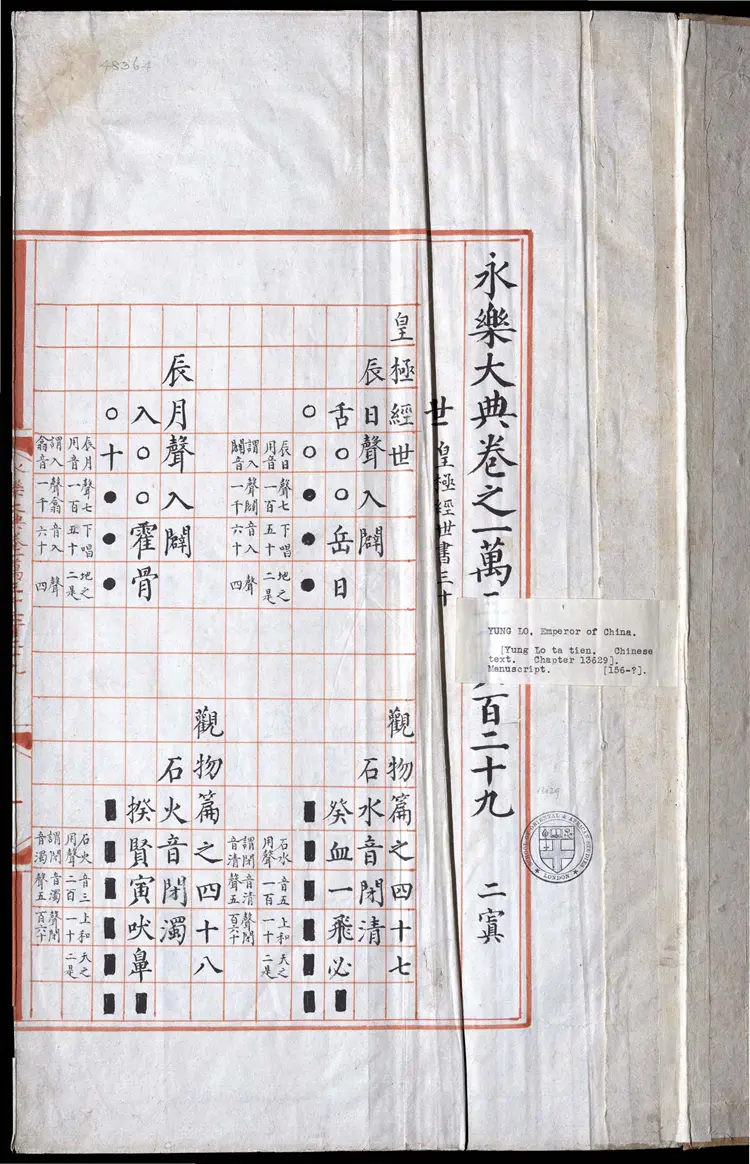 永樂大典卷之一萬 百二十九 二寘
世 皇極經世書三十
皇極經世 觀物篇之四十七
辰日聲入闢 石水音閉清
舌○○岳日 癸血一飛必■
○○●●● ■■■■■■
辰日聲七下唱地之
用音一百五十二是
謂入聲闢音入聲
闢音一千六十四
石水音五上和天之
用聲一百一十二是
謂閉音清聲閉
音清聲五百六十
觀物篇之四十八
辰月聲入闢 石火音閉濁
入○○霍骨 揆賢寅吠鼻■
○十●●● ■■■■■■
辰月聲七下唱地之
用音一百五十二是
謂入聲翕音入聲
翕音一千六十四
石火音三上和天之
用聲二百一十二是
謂閉音濁聲閉
音濁聲五百六十
YUNG LO, Emperor of China.
[Yung Lo ta tien. Chinese
text. Chapter 13629].
Manuscript. [156-?].
48364